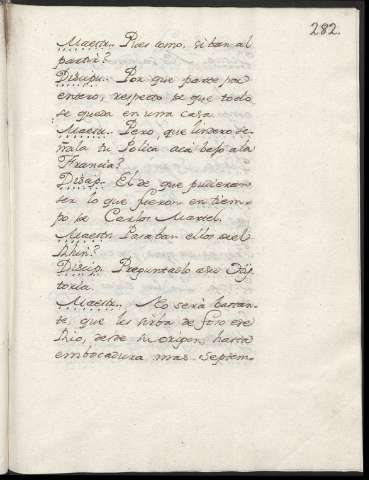 282.
Maestr. Pues como, si ban al
partir?
Discipu. Por que parte por
entero, respecto de que todo
se queda en una casa.
Maestr. Pero, que lindero se-
ñala tu Politica acà bajo a la
Francia?
Discip. El de que pudieran
ser lo que fueron en tiem-
po de Carlos Martel.
Maestr. Pasaban ellos de el
Rhin?
Discip. Preguntadlo a su His-
toria.
Maestr. No serà bastan-
te, que les sirba de foso ese
Rio, desde su origen hasta
embocadura mas Septem-